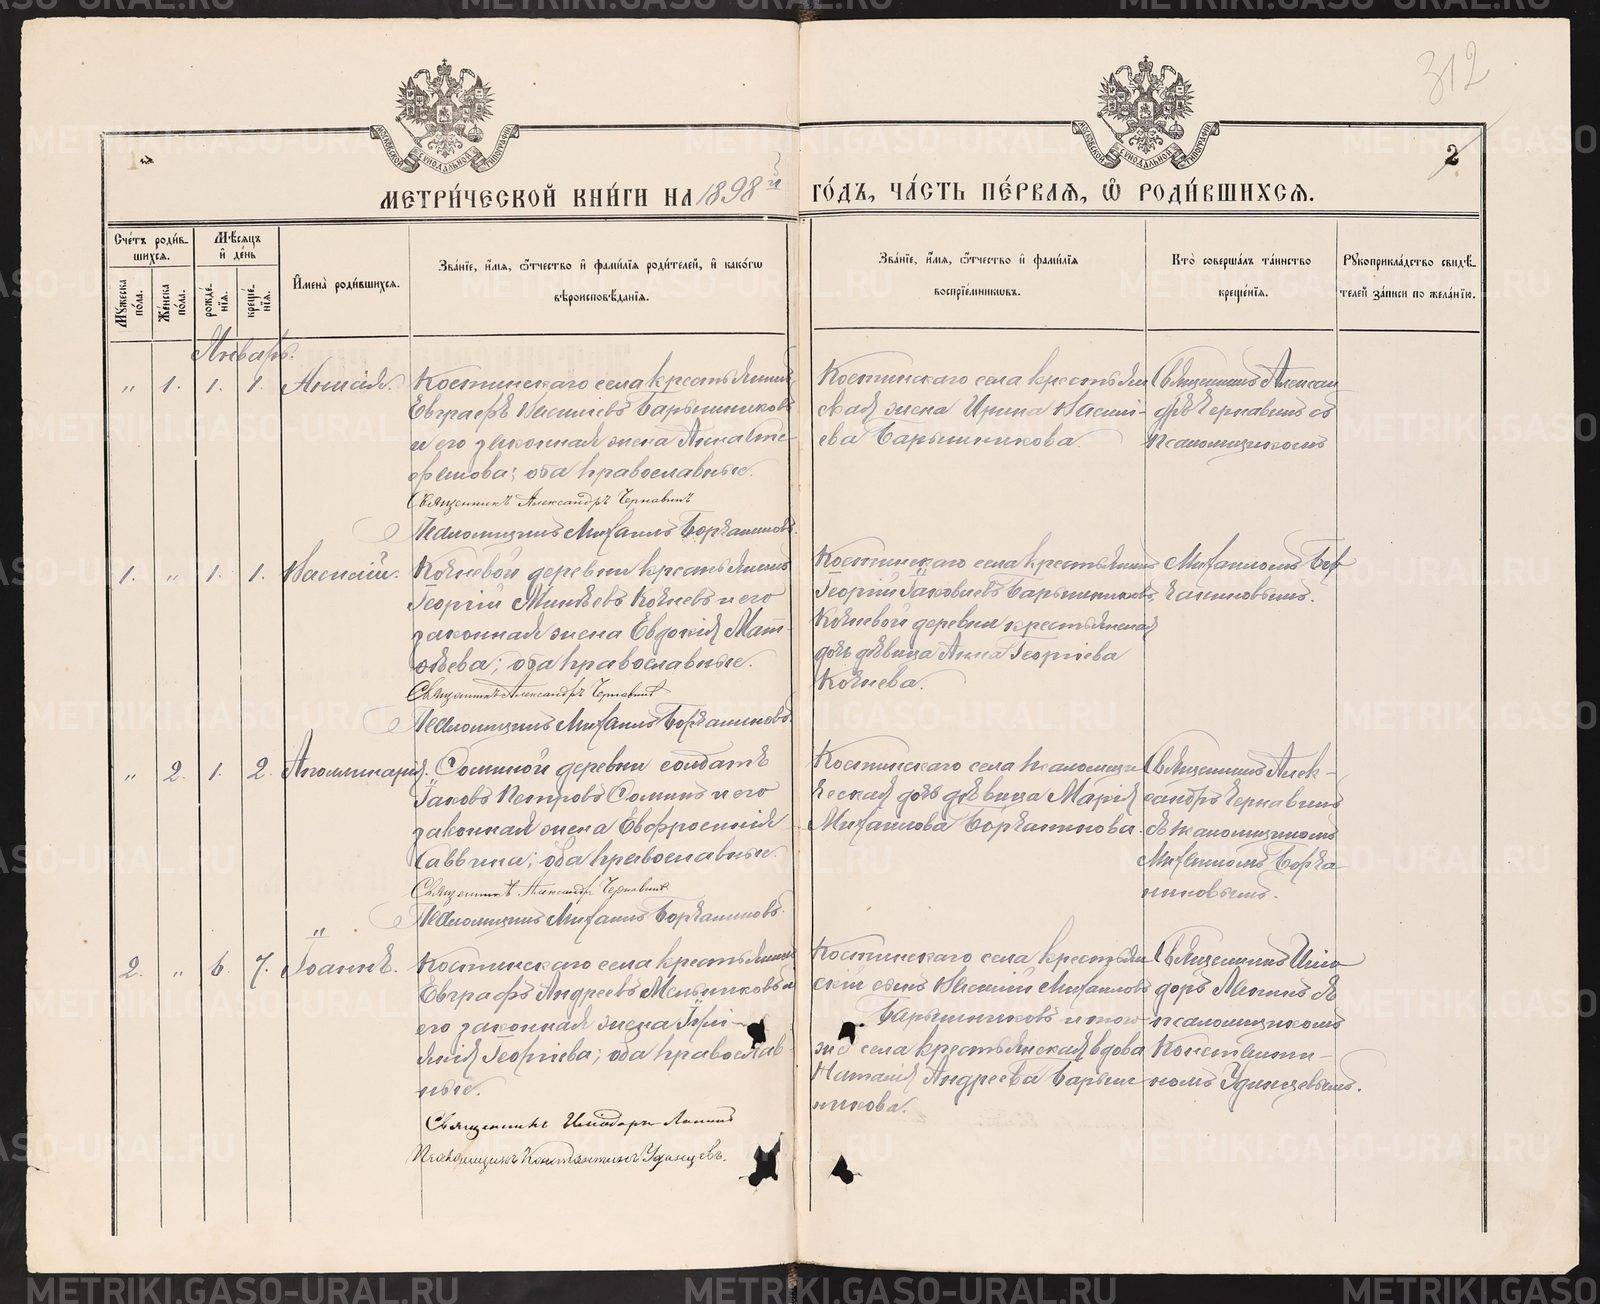 312
2
МОСКОВСКОЙ СѴНОДАЛЬНОЙ ТИПОГРАФІИ
МОСКОВСКОЙ СѴНОДАЛЬНОЙ ТИПОГРАФІИ
МЕТРИ́ЧЕСКОЙ КНИ́ГИ НА 1898й ГО́ДЪ, ЧА́СТЬ ПЕ́РВАЯ, Ѽ РОДИ́ВШИХСЯ.
Сче́тъ роди́в-
шихся.
Мѣ́сяцъ
и҆ де́нь
Мꙋ́жеска
по́ла.
Же́нска
по́ла.
рожде́-
нїя.
креще́-
нїя.
И҆мена̀ роди́вшихся.
Зва́нїе, и҆́мя, ѻ҆́тчество и҆ фами́лїя роди́телей, и҆ како́гѡ
вѣроисповѣ́данїя.
Зва́нїе, и҆́мя, ѻ҆́тчество и҆ фами́лїя
воспрїе́мниковъ.
Кто̀ соверша́лъ та́инство
креще́нїя.
Рꙋкоприкла́дство свидѣ́-
телей за́писи по жела́нїю.
Январь.
" 1. 1. 1. Анисія.
Костинскаго села крестьянинъ
Евграфъ Василіевъ Барышниковъ
и его законная жена Анна Сте-
фанова; оба православные.
Священникъ Александръ Чернавинъ
Псаломщикъ Михаилъ Борчаниновъ.
Костинскаго села крестьян
ская жена Ирина Васили-
ева Барышникова.
Священникъ Алексан
дръ Чернавинъ съ
псаломщикомъ
1. " 1. 1. Василій.
Кочневой деревни крестьянинъ
Георгій Минѣевъ Кочневъ и его
законная жена Евдокія Мат-
ѳѣева; оба православные.
Священникъ Александръ Чернавинъ
Псаломщикъ Михаилъ Борчаниновъ.
Костинскаго села крестьянинъ
Георгій Іаковлевъ Барышниковъ,
Кочневой деревни крестьянская
дочь дѣвица Анна Георгіева
Кочнева.
Михаиломъ Бор
чаниновымъ.
" 2. 1. 2. Аполлинарія.
Соминой деревни солдатъ
Іаковъ Петровъ Соминъ и его
законная жена Евфросинія
Саввина; оба православные.
Священникъ Александръ Чернавинъ
Псаломщикъ Михаилъ Борчаниновъ.
Костинскаго села псаломщи
ческая дочь дѣвица Марія
Михаилова Борчанинова.
Священникъ Алек-
сандръ Чернавинъ
съ псаломщикомъ
Михаиломъ Борча-
ниновымъ.
2. " 6. 7. Іоаннъ.
Костинскаго села крестьянинъ
Евграфъ Андреевъ Мельниковъ и
его законная жена Іули-
анія Георгіева; оба православ-
ные.
Священникъ Исидоръ Ляпинъ
Псаломщикъ Константинъ Удинцевъ.
Костинскаго села крестьян
скій сынъ Василій Михаиловъ
Барышниковъ и того
же села крестьянская вдова
Наталія Андреева Барыш
никова.
Священникъ Иси
доръ Ляпинъ съ
псаломщикомъ
Константи-
номъ Удинцевымъ.
METRIKI.GASO-URAL.RU